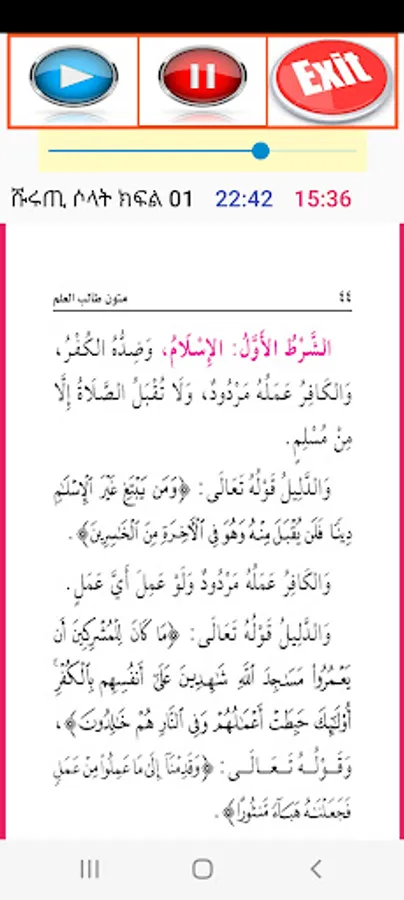 Exit
ሹሩጢ ሶላት ክፍል 01 22:42 15:36
٤٤ متون طالب العلم
الشَّرْطُ الأَوَّلُ: الإِسْلَامُ، وَضِدُّهُ الكُفْرُ،
وَالكَافِرُ عَمَلُهُ مَرْدُودٌ، وَلَا تُقْبَلُ الصَّلَاةُ إِلَّا
مِنْ مُسْلِمٍ.
وَالدَّلِيلُ قَوْلُهُ تَعَالَى: ﴿وَمَن يَبْتَغِ غَيْرَ ٱلْإِسْلَٰمِ
دِينًا فَلَن يُقْبَلَ مِنْهُ وَهُوَ فِي ٱلْأَخِرَةِ مِنَ ٱلْخَٰسِرِينَ﴾.
وَالكَافِرُ عَمَلُهُ مَرْدُودٌ وَلَوْ عَمِلَ أَيَّ عَمَلٍ.
وَالدَّلِيلُ قَوْلُهُ تَعَالَى: ﴿مَا كَانَ لِلْمُشْرِكِينَ أَن
يَعْمُرُوا۟ مَسَٰجِدَ ٱللَّهِ شَٰهِدِينَ عَلَىٰٓ أَنفُسِهِم بِٱلْكُفْرِۚ
أُو۟لَٰٓئِكَ حَبِطَتْ أَعْمَٰلُهُمْ وَفِي ٱلنَّارِ هُمْ خَٰلِدُونَ﴾،
وَقَوْلُهُ تَعَالَى: ﴿وَقَدِمْنَآ إِلَىٰ مَا عَمِلُوا۟ مِنْ عَمَلٍ
فَجَعَلْنَٰهُ هَبَآءً مَّنثُورًا﴾.